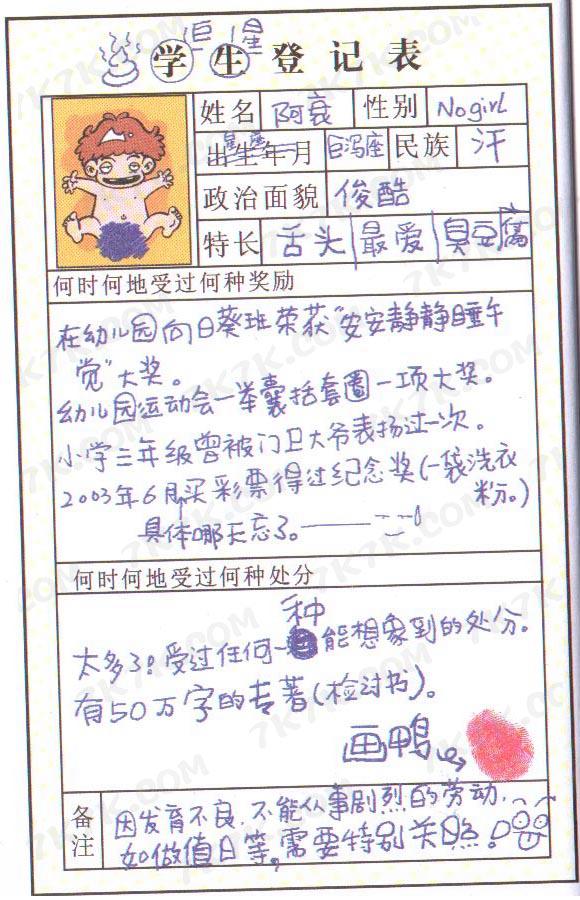 巨星
学生登记表
姓名 阿衰 性别 No girl
出生年月 星座 巨泻座 民族 汗
政治面貌 俊酷
特长 舌头 最爱 臭豆腐
何时何地受过何种奖励
在幼儿园向日葵班荣获“安安静静睡午
觉”大奖。
幼儿园运动会一举囊括套圈一项大奖。
小学三年级曾被门卫大爷表扬过一次。
2003年6月买彩票得过纪念奖(一袋洗衣
粉。)
具体哪天忘了。
何时何地受过何种处分
太多了!受过任何一种能想象到的处分。
有50万字的专著(检讨书)。
画鸭
备注
因发育不良,不能从事剧烈的劳动,
如做值日等,需要特别关照!
7K7K.COM